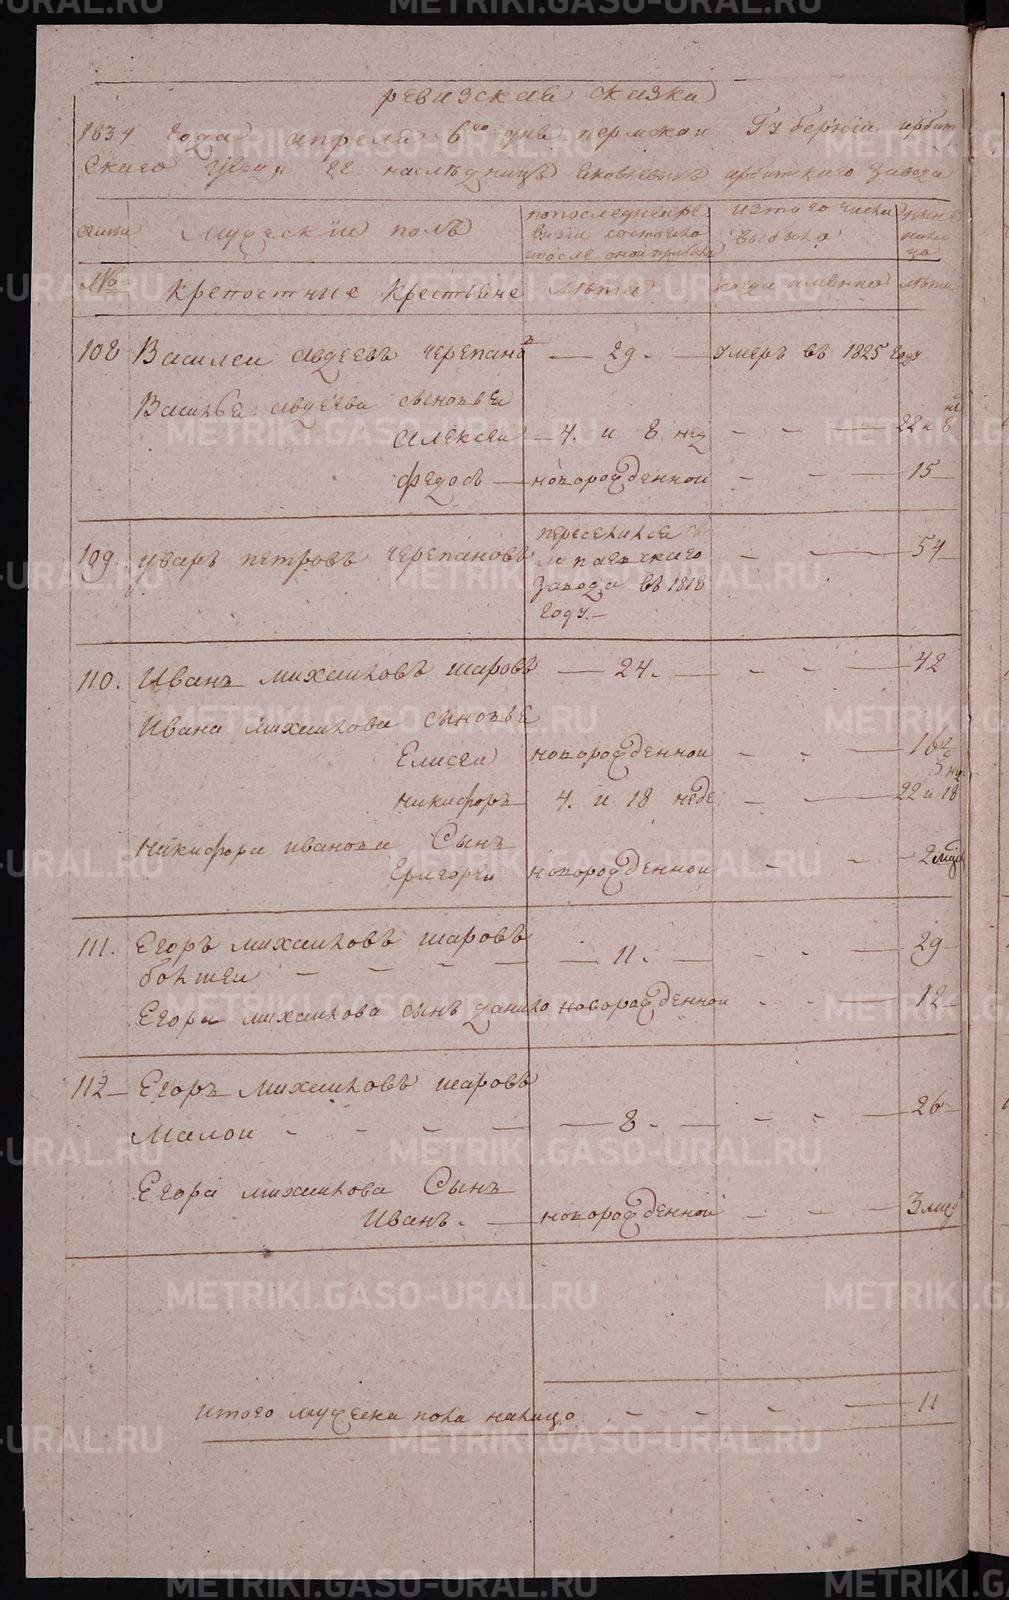 ревизская сказка
1834 года апреля 6го дня пермской Губерніи ирбит
скаго уезда гг наслѣдницъ яковлевыхъ ирбитскаго завода
семьи мужескій полъ
попоследнеире визіи состояло ипосле оной прибыло
изтого числа выбыло
ныне налицо
№ крепостные крестьяне лѣта когда именно лѣта
108 Василеи авдеевъ черепановъ — 29 — умеръ въ 1825 году
Василья авдеева сыновья
алексеи — 4. и 8 нед - - — 22 и 8 не
федосъ — новорожденнои - — 15 —
109. уваръ петровъ черепановъ переселился
завода въ 1818 году. — - — 54
110. Иванъ михаиловъ шаровъ — 24. — - - — 42
Ивана михаилова сыновья
Елисеи новорожденнои - - — 16
5 не
никифоръ 4. и 18 неде - — 22 и 18
никифора иванова Сынъ
Григореи новорожденнои - - - 2 мце
111. Егоръ михаиловъ шаровъ
болшеи - - - — — 11. — - - — 29
Егора михаилова сынъ данило новорожденнои - - — 12
112 — Егоръ михаиловъ шаровъ
Малои - - - — — 8 - — - - — 26
Егора михаилова Сынъ
Иванъ. — новорожденнои - - — 3 мце
итого мужеска пола налицо - - - — 11
METRIKI.GASO-URAL.RU